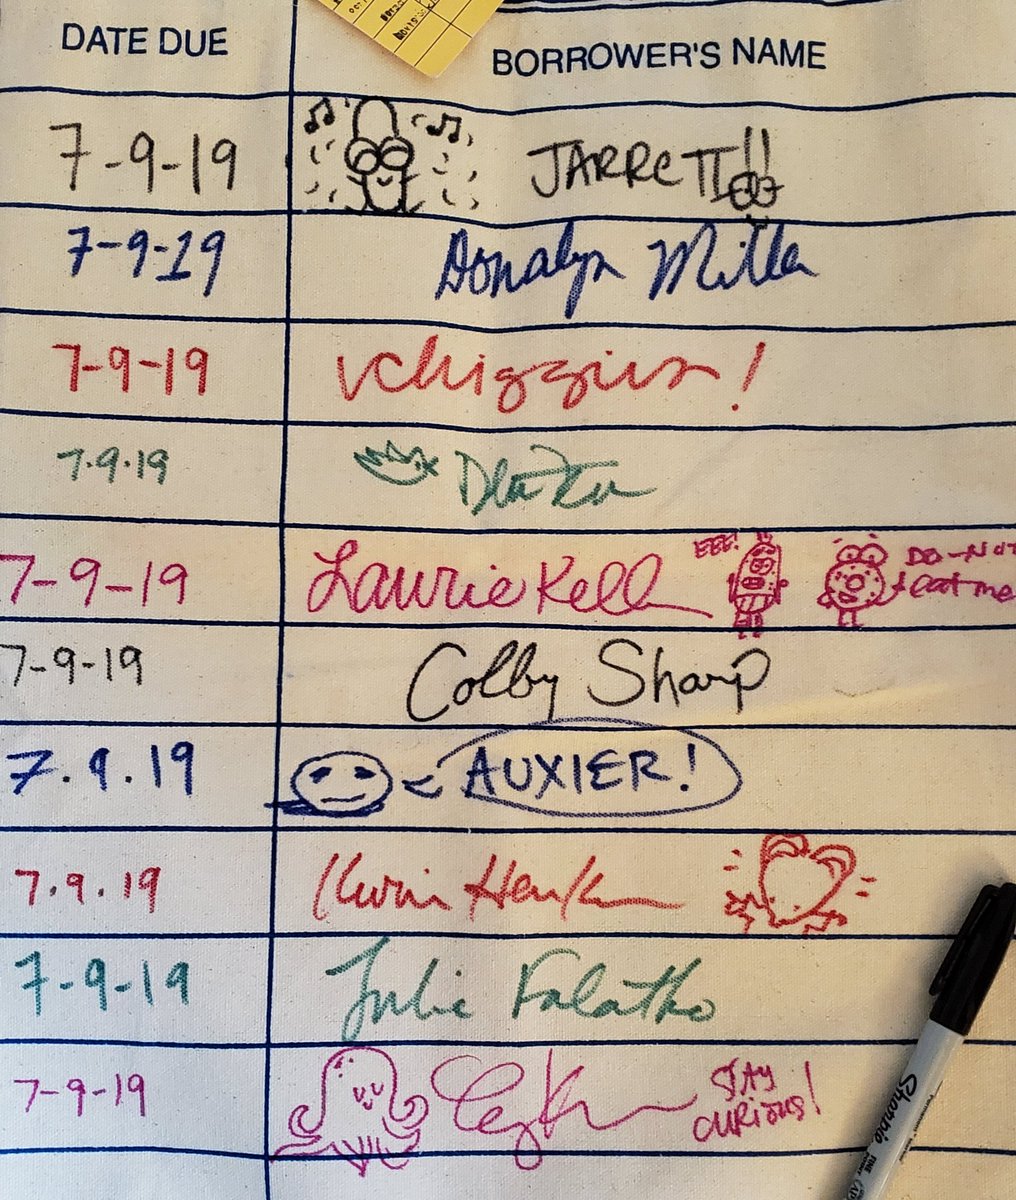 DATE DUE BORROWER'S NAME
7-9-19 JARRETT!!
7-9-19 Donalyn Miller
7-9-19 vchiggins!
7.9.19
7-9-19 Laurie Kell EEE! DO NOT eat me
7-9-19 Colby Sharp
7.9.19 AUXIER!
7.9.19 Kevin Henkes
7-9-19 Julie Falatko
7-9-19 STAY curious!
Sharpie